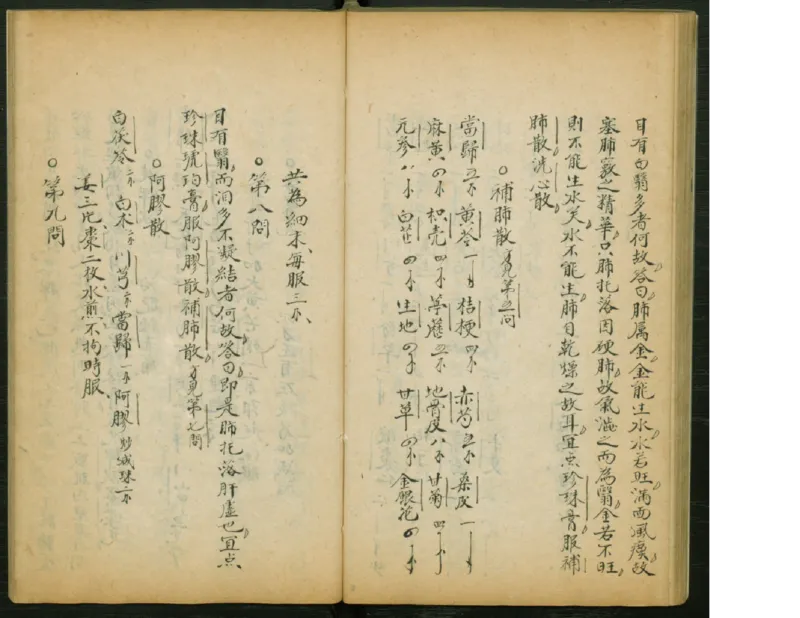 目有白翳多者何故答曰肺属金金能生水水若旺滿而風痰故
塞肺竅之精華只肺托落因硬肺故氣澁之而為翳金若不旺
則不能生水矣水不能生肺目乾燥之故耳宜点珍珠膏服補
肺散洗心散
○補肺散方見第五问
當歸 五分 黄芩 一 桔梗 四分 赤芍 五分 桑皮 一
麻黄 四分 枳壳 四分 葶藶 五分 地骨皮 八分 甘菊 四
元参 八分 白芷 四分 生地 四分 甘草 四分 金銀花 四分
共為細末每服三分
○第八問
目有翳而泪多不凝結者何故答曰即是肺托落肝虚也宜点
珍珠琥珀膏服阿膠散補肺散方見第七問
○阿膠散
白茯苓 二分 白术 二分 川芎 二分 當歸 一分 阿膠 炒成珠二分
姜三片棗二枚水煎不拘時服
○第九問